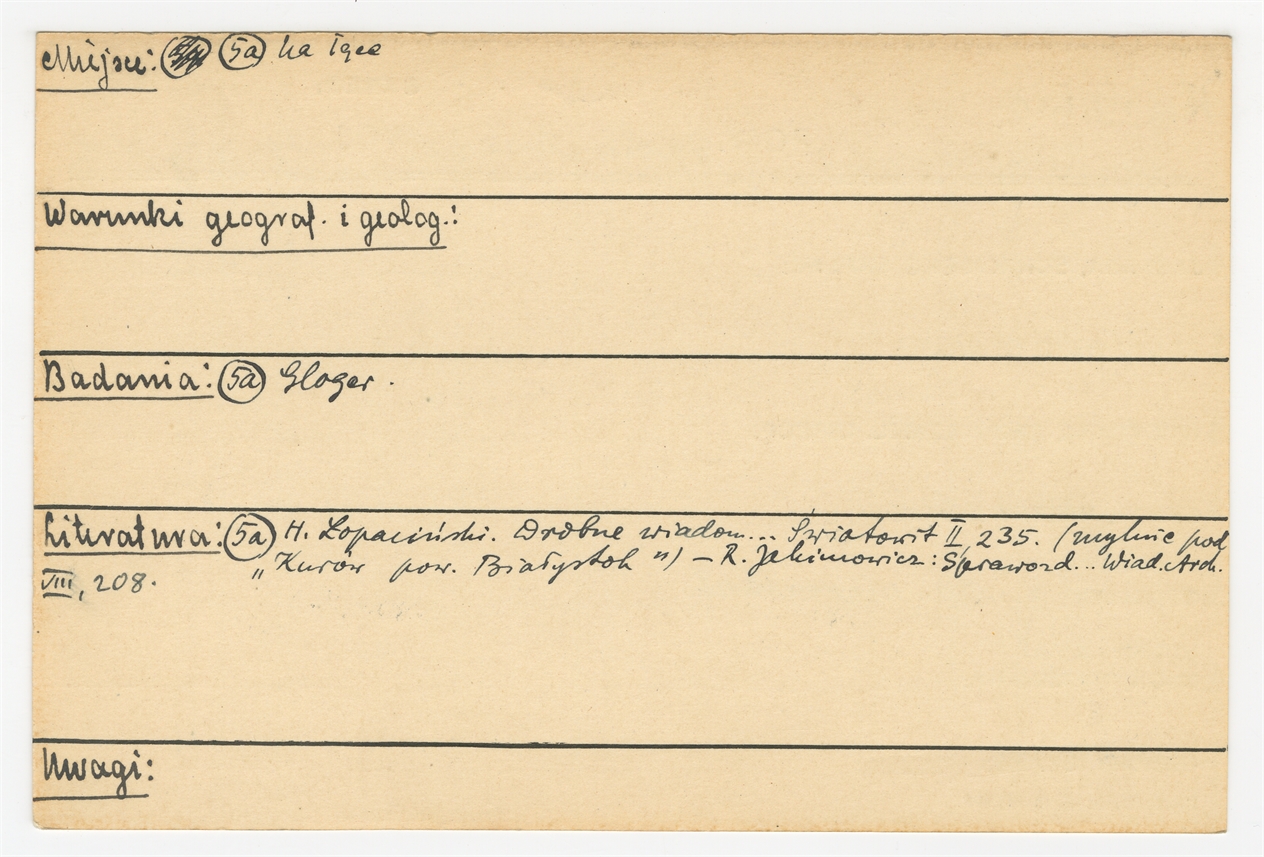 Miejsce: (5a) na łące
Warunki geograf. i geolog.:
Badania: (5a) Gloger.
Literatura: (5a) H. Łopaciński. Drobne wiadom... Światowit II, 235. (mylnie pod
„Kurów pow. Białystok") – R. Jakimowicz: Sprawozd... Wiad. Arch.
VIII, 208.
Uwagi: